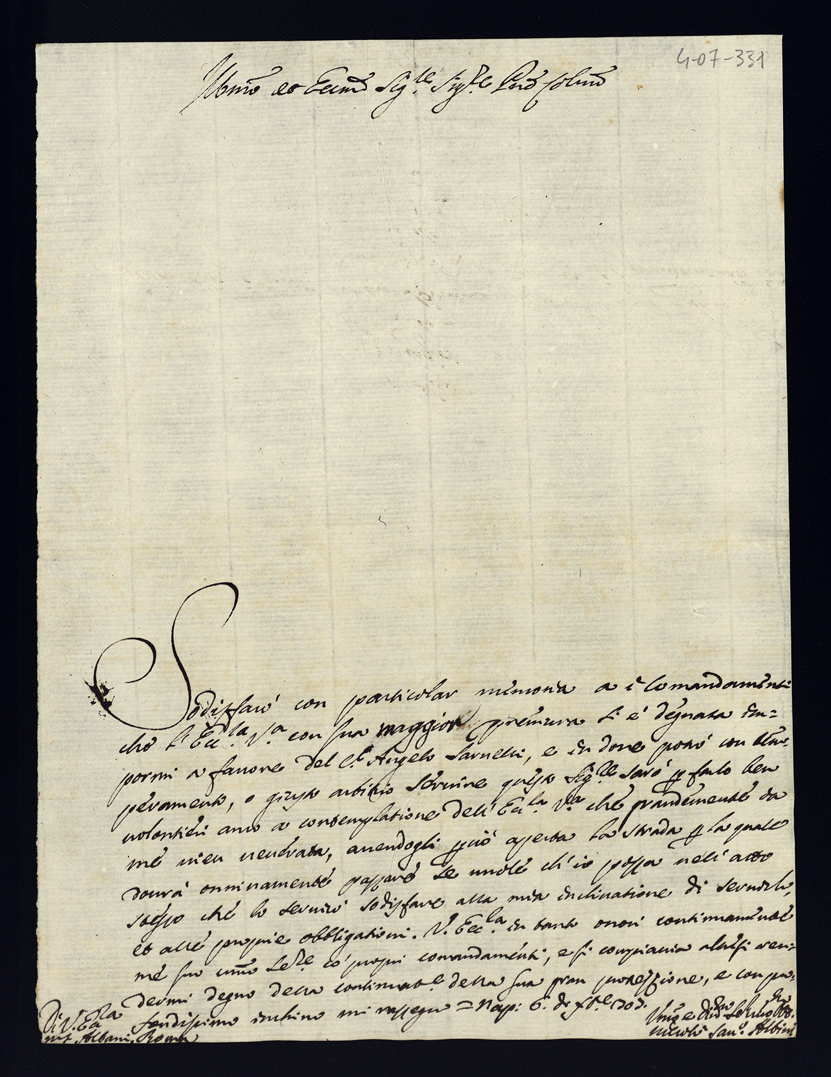 4-07-331
Illmo et Eccmo Sig.re Sig.re Pne Colmo
Sodisfarò con particolar memoria a i Comandamenti
che l'Ecc.la V.a con sua maggior premura si è degnata im=
pormi a favore del Angelo Sarnelli, e in dove potrò con
o giusto arbitrio servire questo Sig.re sarò p farlo ben
volontieri anco a contemplatione dell'Ecc.la V.a che grandemente da
me vien venerata, avendogli però aperta la strada p la quale
dourà onninamente passare se vuole ch'io possa nell'atto
stesso che lo servirò sodisfare alla mia inclinatione di servirlo,
et alle proprie obbligationi. V. Ecc.la in tanto onori continuamente
me suo co' propri comandamenti, e si compiaccia altresì
dermi degno della continuat.e della sua gran protezzione, e con
fondissimo inchino mi rassegno = Nap. 6. di Xbre 703.
Di V. Ecc.la
Albani, Roma
Nicolò Albini